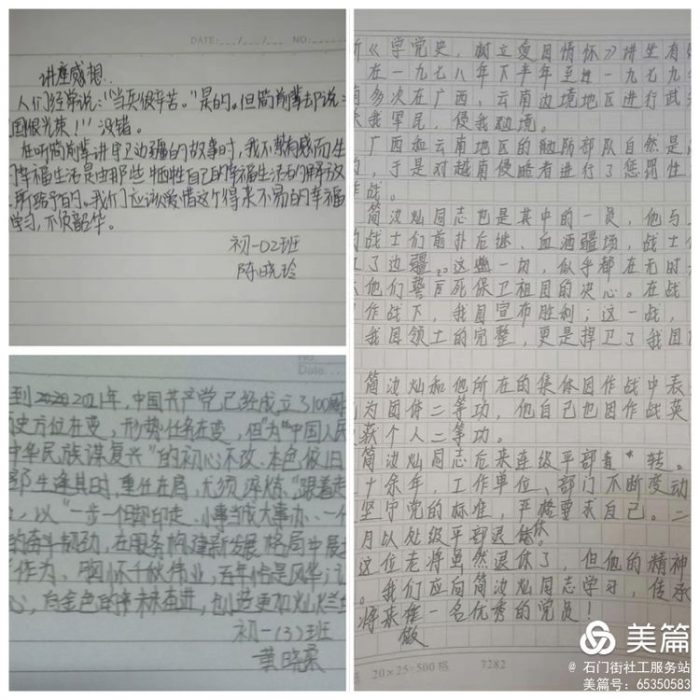 DATE:
讲座感想
人们经常说："当兵很辛苦。"是的。但简前辈却说：
国很光荣！"没错。
在听简前辈讲早卫边疆的故事时，我不禁有感而生
幸福生活是由那些牺牲自己的幸福生活的解放
所给予的。我们应该爱惜这个得来不易的幸福
学习，不负韶华。
初一02班
陈晓玲
NO.
Date.
到2020 2021年，中国共产党已经成立了100周
历史方位在变，形势任务在变，但为"中国人民
中华民族谋复兴"的初心不改，本色依旧
部生逢其时，重任在肩，尤须深炼"跟着走
，以"一步一个脚印走、小事当成大事办、一个
的奋斗韧劲，在服务构建新发展格局中展
作为、胸怀千秋伟业，百年恰是风华
心，向金色的未来奋进，创造更加灿烂
初一(3)班
黄晓柔
听《学党史，树立爱国情怀》讲坐有
在一九七八年下半年至 一九七九
南多次在广西，云南边境地区进行武
我军民，侵我边境。
广西和云南地区的 防部队自然是
的，于是对越南侵略者进行了惩罚性
作战。
简汝灿同志也是其中的一员，他与
的战士们前扑后继、血洒疆场，战士
了边疆。这些一切，似乎都在无时
他们誓言死保卫祖国的决心。在战
作战下，我国宣布胜利；这一战，
我国领土的完整，更是捍卫了我国
简汝灿和他所在的集体因作战中表
为团体二等功，他自己也因作战英
获个人二等功。
简汝灿同志后来连级平部直 转。
十余年，工作单位、部门不断变动
坚守党的标准，严格要求自己。二
月以处级平部退休。
这位老将虽然退休了，但他的精神
。我们应向简汝灿同志学习，传承
将来做一名优秀的党员！
20×25=500格 7282
美篇
@ 石门街社工服务站
美篇号：65350583